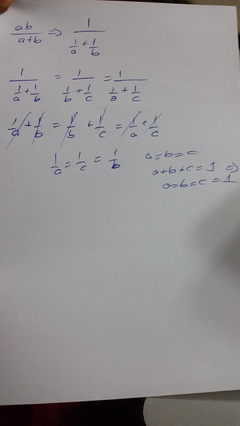 ab/a+b ⇒ 1/(1/a + 1/b)
1/(1/a + 1/b) = 1/(1/b + 1/c) = 1/(1/a + 1/c)
1/a + 1/b = 1/b + 1/c = 1/a + 1/c
1/a = 1/c = 1/b a=b=c
a+b+c=3
a=b=c=1